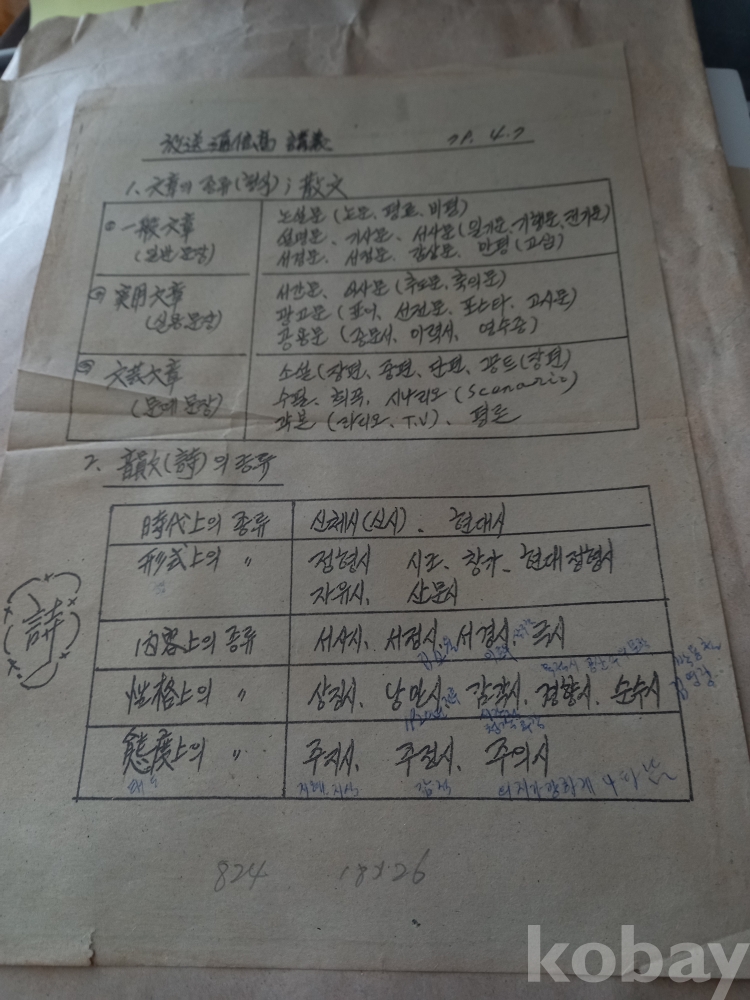 放送通信高 講義 79. 4. 7
1. 文章의 종류(형식) ; 散文
① 一般文章 (일반문장)
논설문 (논문, 평론, 비평)
설명문, 기사문, 서사문(일기문, 기행문, 전기문)
서경문, 서정문, 감상문, 만평(고십)
② 実用文章 (실용문장)
서간문, 식사문 (추도문, 축의문)
광고문 (표어, 선전문, 포스타, 고사문)
공용문 (공문서, 이력서, 영수증)
③ 文芸文章 (문예문장)
소설(장편, 중편, 단편, 꽁트(장편)
수필, 희곡, 시나리오 (Scenario)
각본 (라디오, T.V), 평론
2. 韻文(詩)의 종류
詩
時代上의 종류 신체시(신시), 현대시
形式上의 〃 정형시 시조, 창가, 현대정형시
자유시, 산문시
內容上의 종류 서사시, 서정시, 서경시, 극시
性格上의 〃 상징시, 낭만시, 감각시, 경향시, 순수시
김영랑
態度上의 〃 주지시, 주정시, 주의시
태도 지혜, 지식 감정 의지가 강하게 나타남
824 18×26
kobay